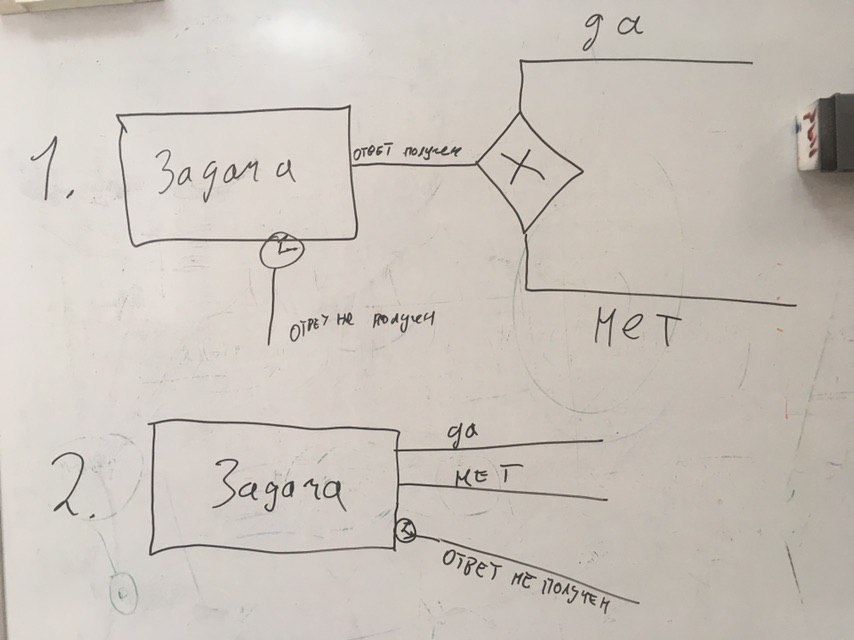 да
1.
Задача
ответ получен
X
ответ не получен
нет
2.
Задача
да
нет
ответ не получен